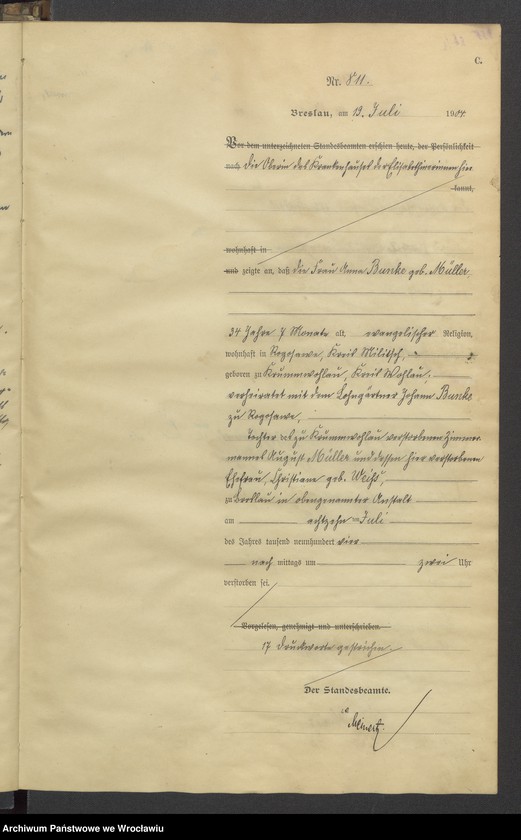 C.
Nr. 811.
Breslau, am 19. Juli 1904
Vor dem unterzeichneten Standesbeamten erschien heute, der Persönlichkeit
nach die Oberin des Krankenhauses der Elisabethinerinnen hier
kannt,
wohnhaft in
und zeigte an, daß die Frau Anna Bunke geb. Müller,
34 Jahre 7 Monate alt, evangelischer Religion,
wohnhaft in Rogosawe, Kreis Militsch,
geboren zu Krummwohlau, Kreis Wohlau,
verheiratet mit dem Lohngärtner Johann Bunke
zu Rogosawe,
Tochter des zu Krummwohlau verstorbenen Zimmer-
mannes August Müller und dessen hier verstorbenen
Ehefrau, Christiane geb.
zu Breslau in obengenannter Anstalt
am achtzehn Juli
des Jahres tausend neunhundert vier
nach mittags um zwei Uhr
verstorben sei.
Vorgelesen, genehmigt und unterschrieben.
17 Druckworte gestrichen.
Der Standesbeamte.
Archiwum Państwowe we Wrocławiu